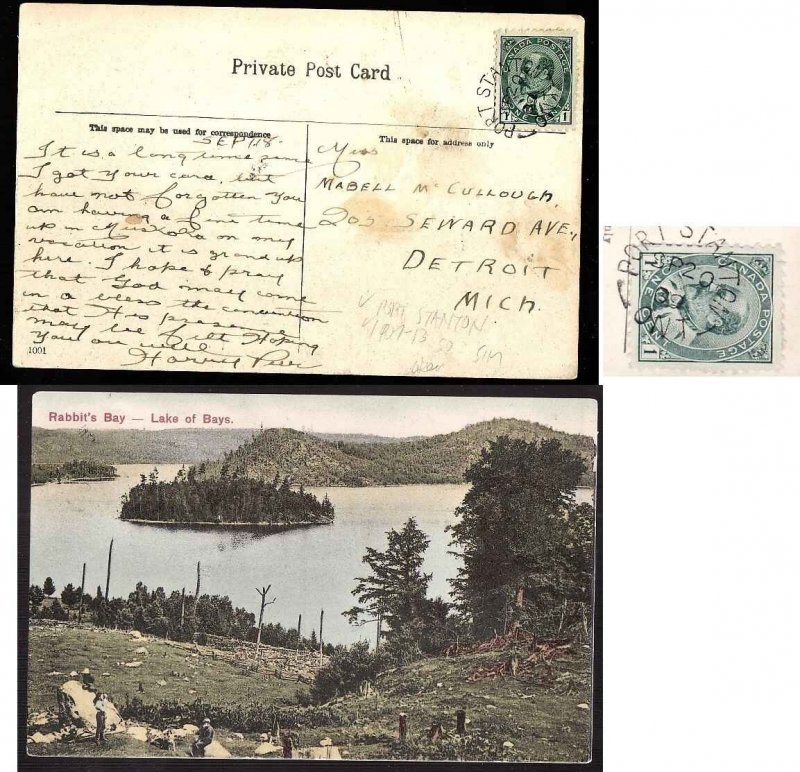 Private Post Card
CANADA POSTAGE
PORT STANTON
1 1
This space may be used for correspondence
This space for address only
SEP/18.
It is a long time since
I got your card, but
have not forgotten you
am having a fine time
up in Muskoka on my
vacation it is grand up
here. I hope & pray
that God may come
in a bless the convention
that His presence
may be felt Hoping
You are well.
Harvey
1001
Miss
MABELL McCULLOUGH,
205 SEWARD AVE.,
DETROIT
MICH.
PORT STANTON
PORT STA
SP 20
09
CANADA POSTAGE
1
Rabbit's Bay — Lake of Bays.